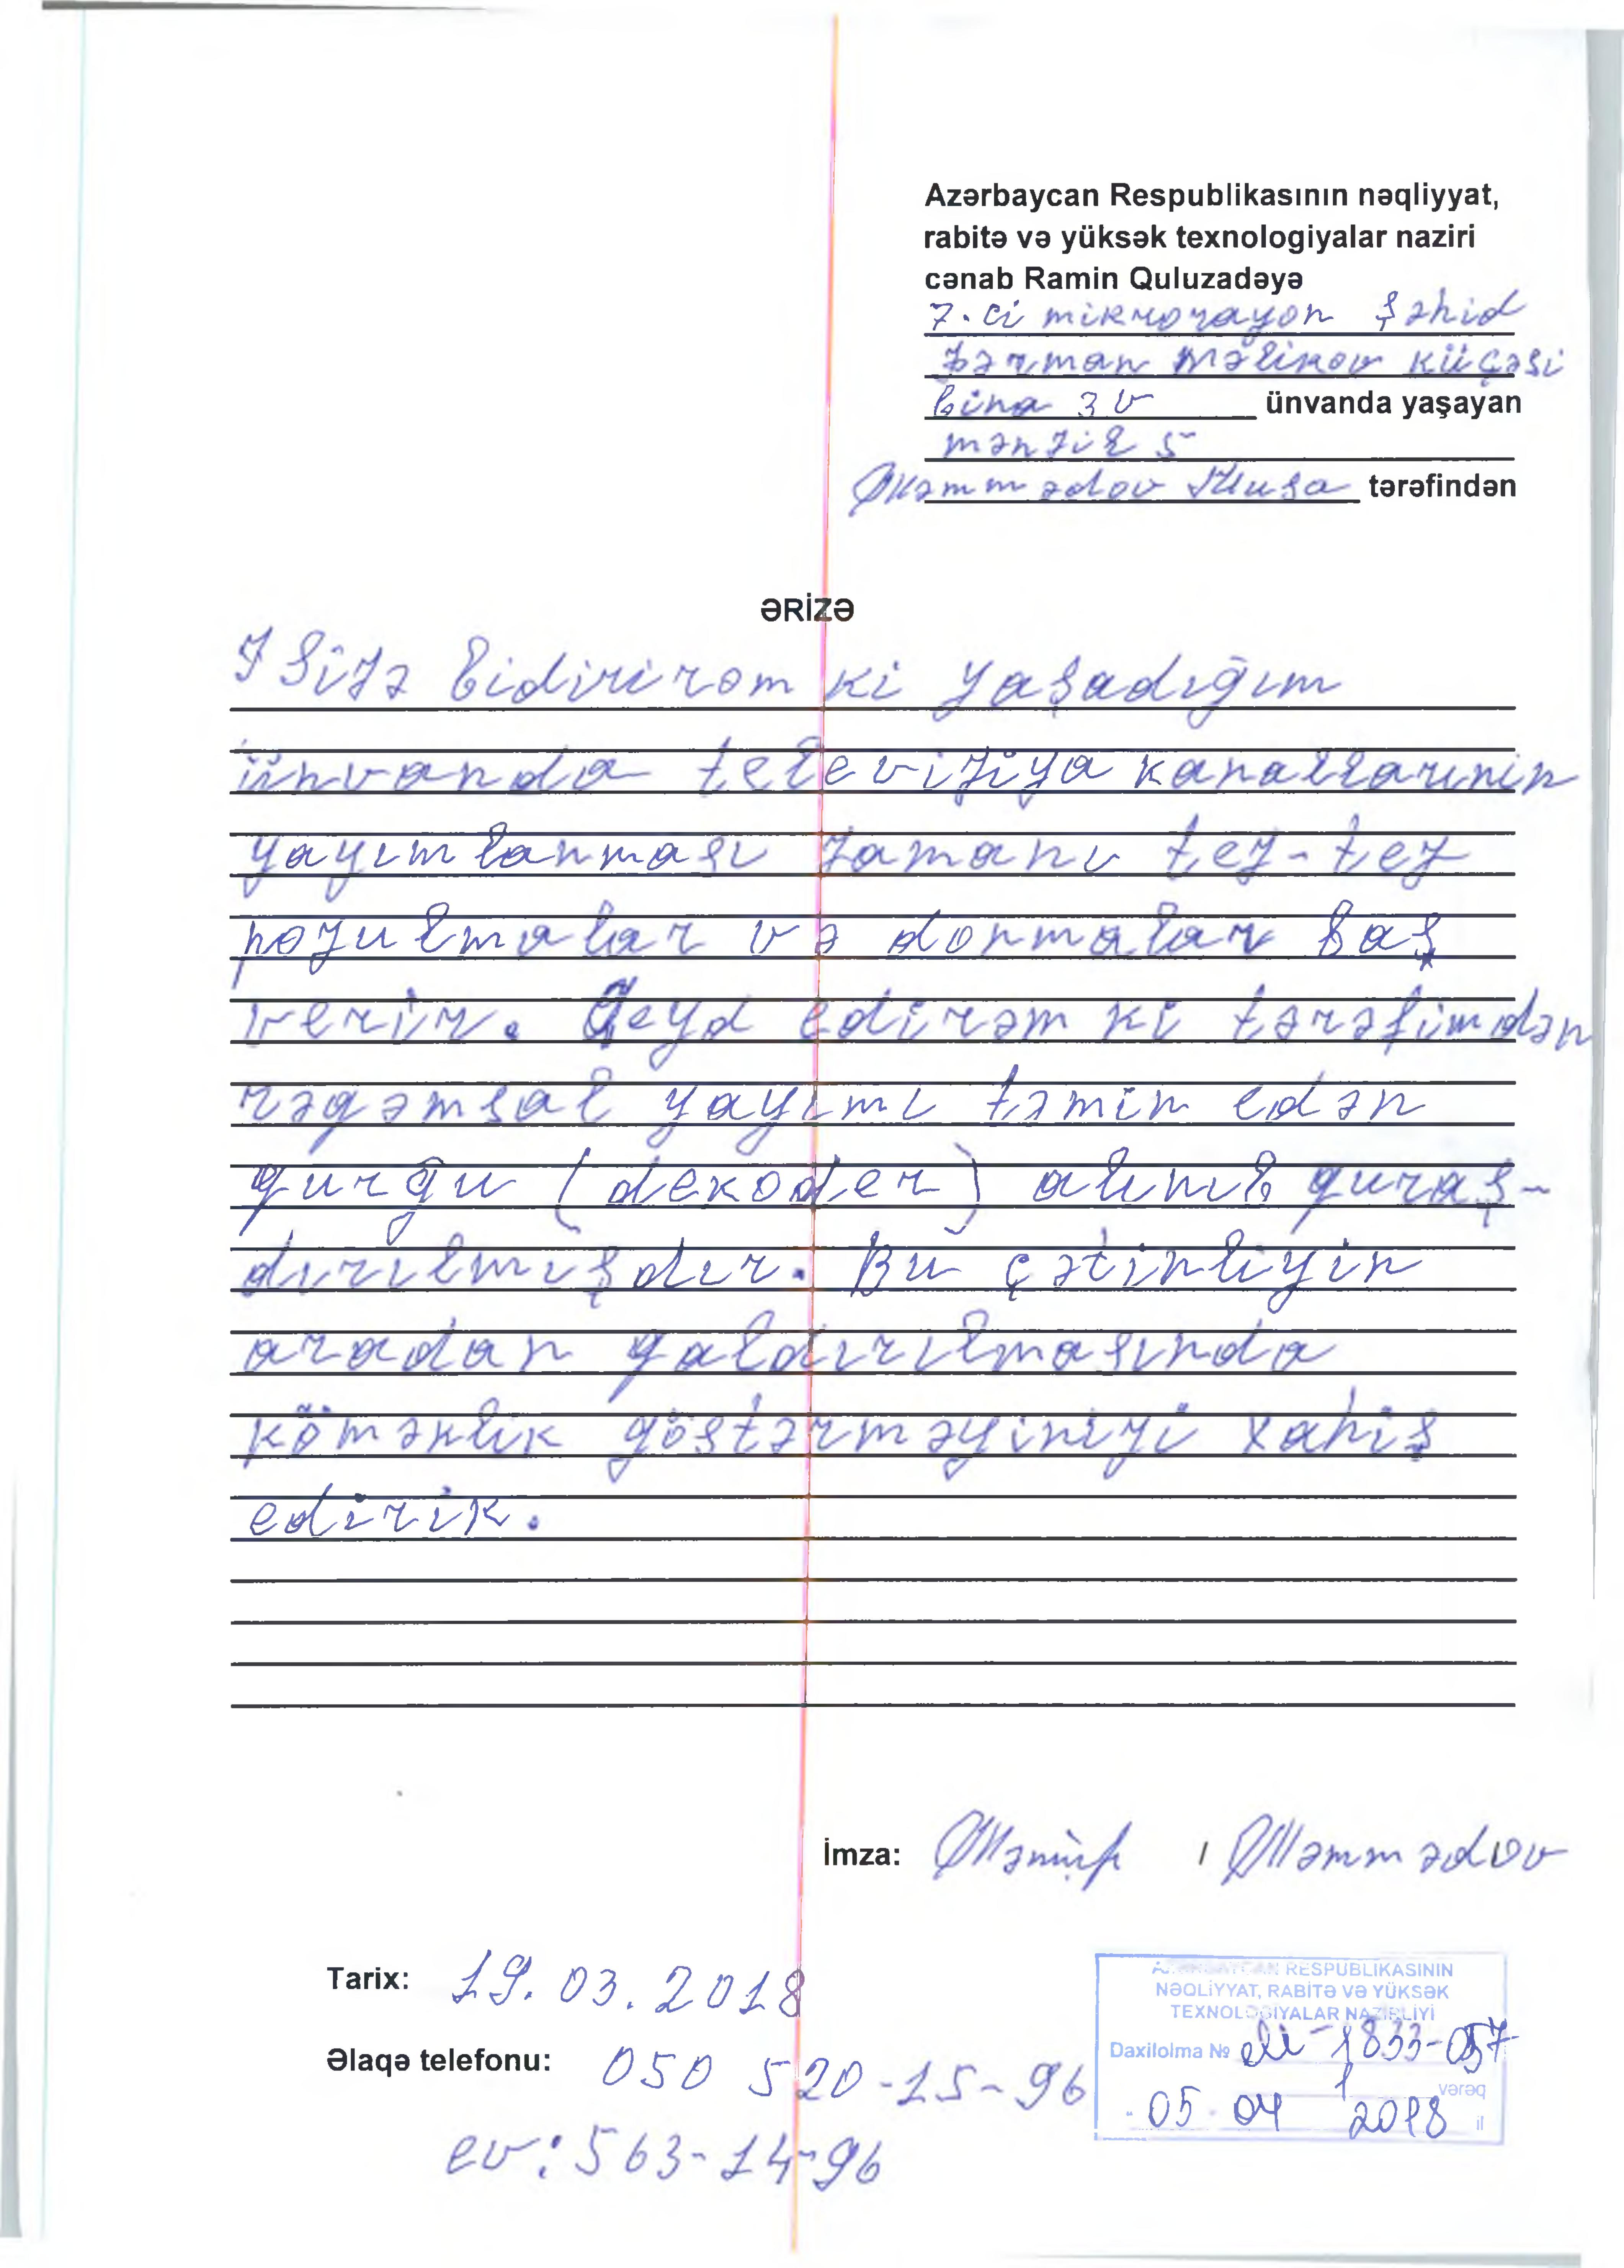 Azərbaycan Respublikasının nəqliyyat,
rabitə və yüksək texnologiyalar naziri
cənab Ramin Quluzadəyə
7.ci mikrorayon Şəhid
Fərman Məlikov küçəsi
bina 3 b ünvanda yaşayan
mənzil 5
Məmmədov Musa tərəfindən
ƏRİZƏ
Sizə bidirirəm ki yaşadığım
ünvanda televiziya kanallarının
yayımlanması zamanı tez-tez
pozulmalar və donmalar baş
verir. Qeyd edirəm ki tərəfimdən
rəqəmsal yayımı təmin edən
qurğu (dekoder) alınıb quraş-
dırılmışdır. Bu çətinliyin
aradan qaldırılmasında
köməklik göstərməyinizi xahiş
edirik.
İmza: / Məmmədov
Tarix: 19.03.2018
Əlaqə telefonu: 050 520-15-96
ev: 563-14-96
AZƏRBAYCAN RESPUBLİKASININ
NƏQLİYYAT, RABİTƏ VƏ YÜKSƏK
TEXNOLOGİYALAR NAZİRLİYİ
Daxilolma № eli-1833-057
1 vərəq
05 04 2018 il